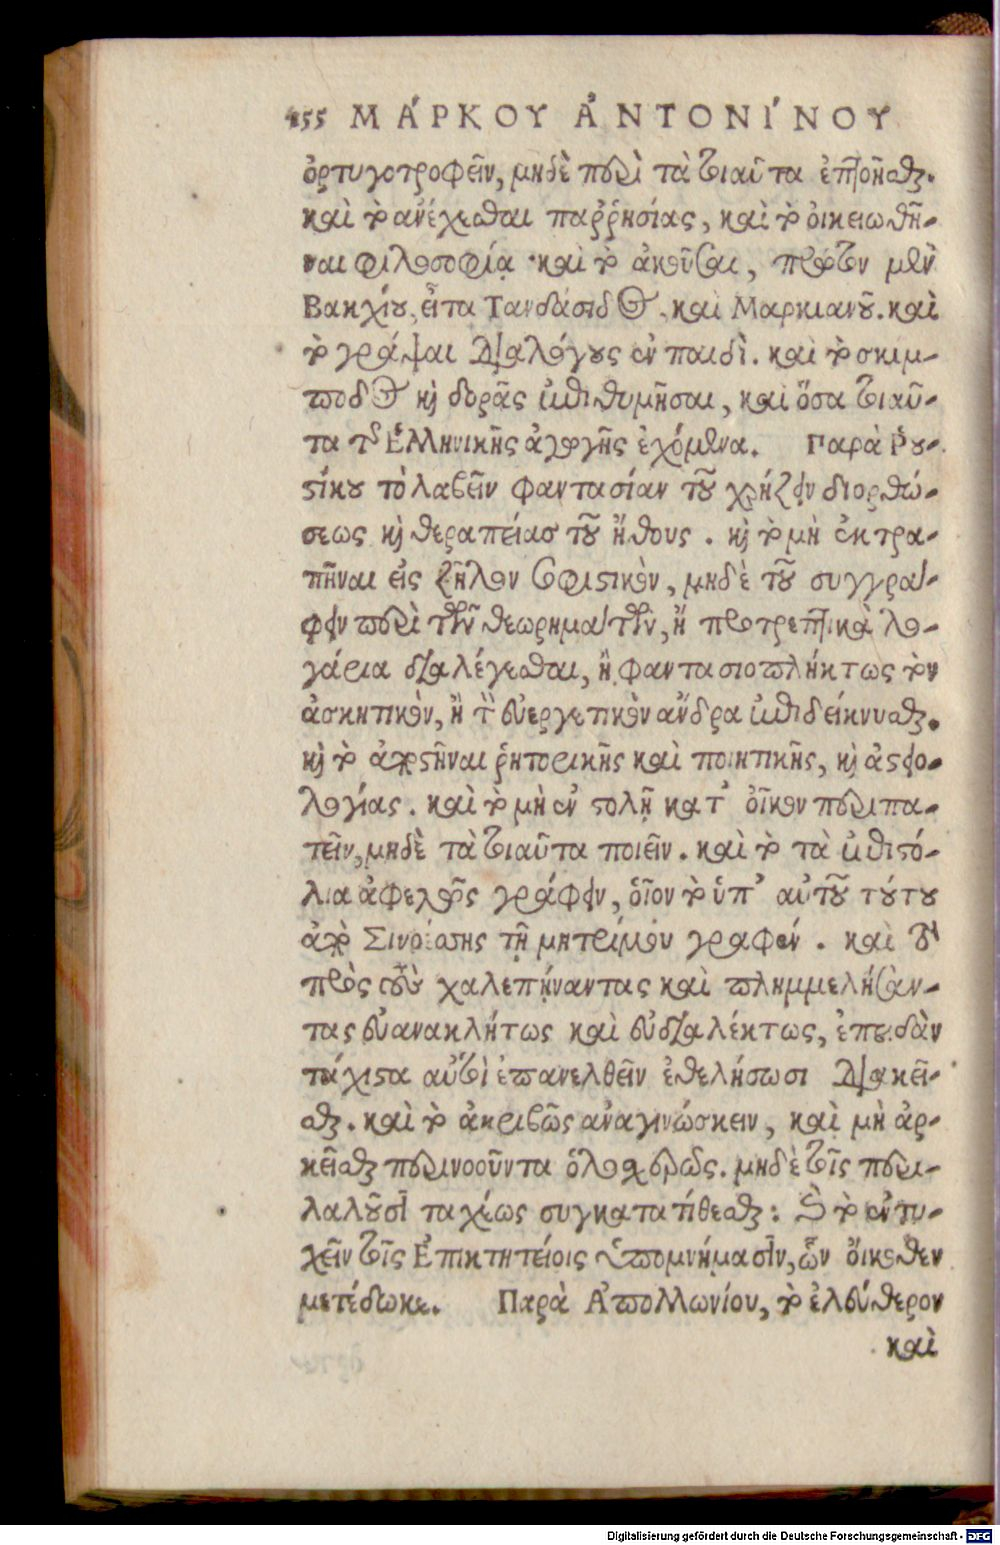 455 ΜΆΡΚΟΥ ἈΝΤΟΝΊΝΟΥ
ὀρτυγοτροφεῖν, μηδὲ περὶ τὰ τοιαῦτα ἐπτοῆσθαι.
καὶ τὸ ἀνέχεσθαι παῤῥησίας, καὶ τὸ οἰκειωθῆ-
ναι φιλοσοφίᾳ· καὶ τὸ ἀκοῦσαι, πρῶτον μὲν
Βακχίου, εἶτα Τανδάσιδος, καὶ Μαρκιανοῦ. καὶ
τὸ γράψαι διαλόγους ἐν παιδὶ. καὶ τὸ σκίμ-
ποδος καὶ δορᾶς ἐπιθυμῆσαι, καὶ ὅσα τοιαῦ-
τα τῆς Ἑλληνικῆς ἀγωγῆς ἐχόμενα. Παρὰ Ῥου-
στίκου τὸ λαβεῖν φαντασίαν τοῦ χρήζειν διορθώ-
σεως καὶ θεραπείας τοῦ ἤθους. καὶ τὸ μὴ ἐκτρα-
πῆναι εἰς ζῆλον σοφιστικὸν, μηδὲ τοῦ συγγρά-
φειν περὶ τῶν θεωρημάτων, ἢ προτρεπτικὰ λο-
γάρια διαλέγεσθαι, ἢ φαντασιοπλήκτως τὸν
ἀσκητικὸν, ἢ τὸν εὐεργετικὸν ἄνδρα ἐπιδείκνυσθαι.
καὶ τὸ ἀποστῆναι ῥητορικῆς καὶ ποιητικῆς, καὶ ἀστειο-
λογίας. καὶ τὸ μὴ ἐν στολῇ κατ' οἶκον περιπα-
τεῖν, μηδὲ τὰ τοιαῦτα ποιεῖν. καὶ τὸ τὰ ἐπιστό-
λια ἀφελῶς γράφειν, οἷον τὸ ὑπ' αὐτοῦ τούτου
ἀπὸ Σινοέσσης τῇ μητρί μου γραφέν. καὶ τὸ
πρὸς τοὺς χαλεπήναντας καὶ πλημμελήσαν-
τας εὐανακλήτως καὶ εὐδιαλέκτως, ἐπειδὰν
τάχιστα αὐτοὶ ἐπανελθεῖν ἐθελήσωσι διακεῖ-
σθαι. καὶ τὸ ἀκριβῶς ἀναγινώσκειν, καὶ μὴ ἀρ-
κεῖσθαι περινοοῦντα ὁλοσχερῶς. μηδὲ τοῖς περι-
λαλοῦσι ταχέως συγκατατίθεσθαι: καὶ τὸ ἐντυ-
χεῖν τοῖς Ἐπικτητείοις ὑπομνήμασιν, ὧν οἴκοθεν
μετέδωκε. Παρὰ Ἀπολλωνίου, τὸ ἐλεύθερον
καὶ
Digitalisierung gefördert durch die Deutsche Forschungsgemeinschaft - DFG